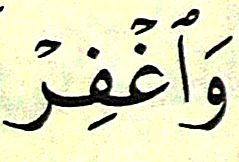 وَٱغْفِرْ